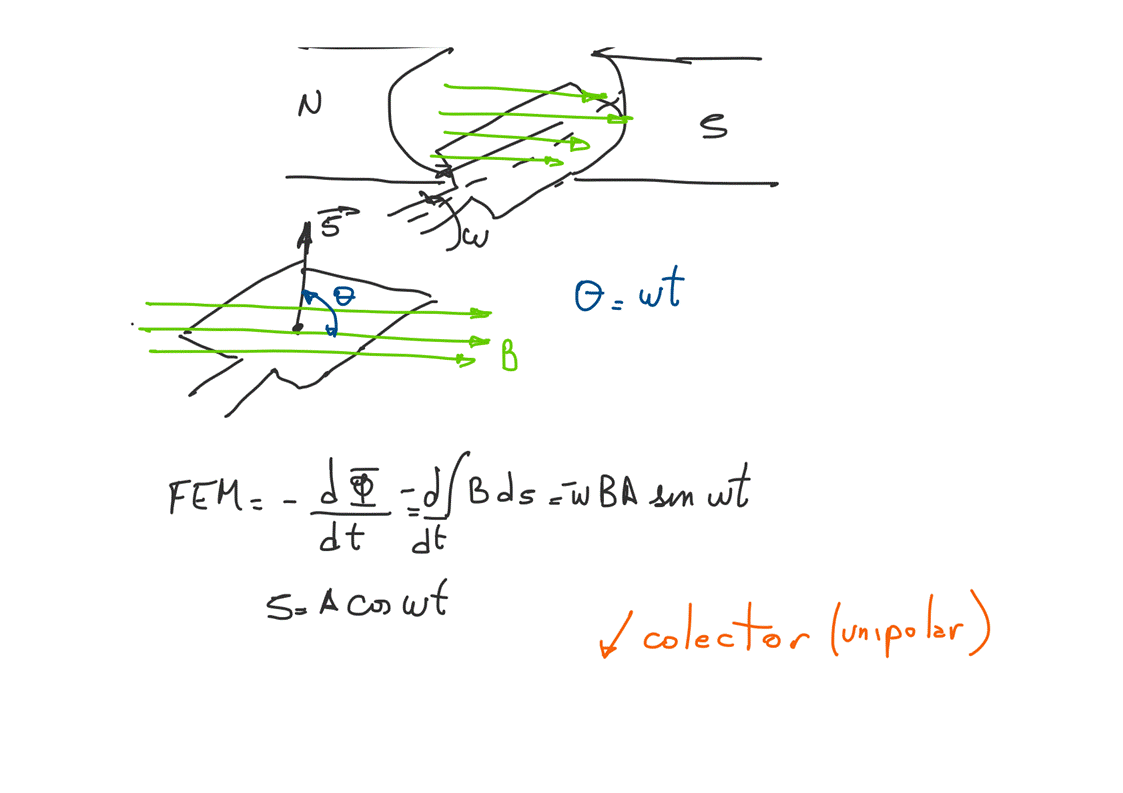 N
S
ω
S
θ
θ = ωt
B
FEM = - dΦ/dt = -d/dt ∫ B ds = -ωBA sin ωt
S = A cos ωt
↙ colector (unipolar)